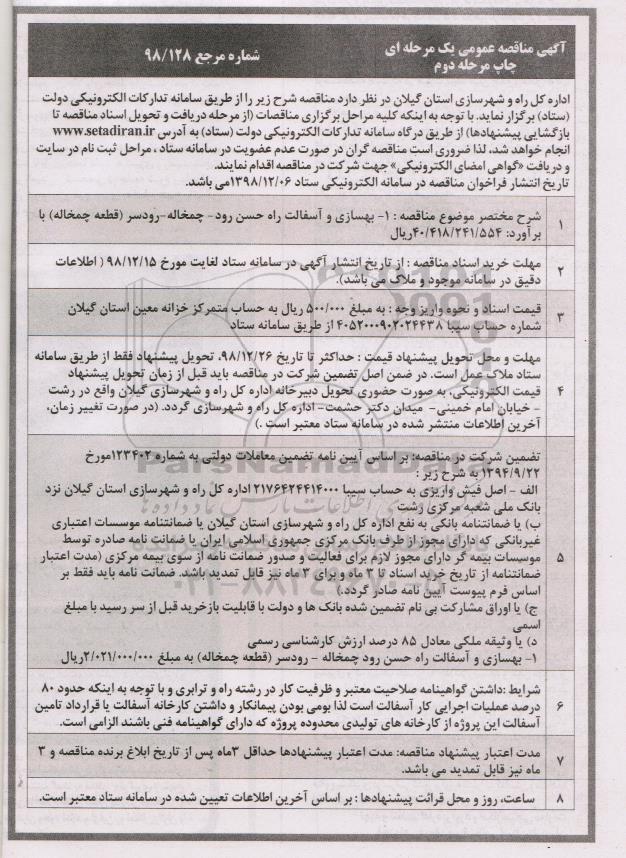 آگهی مناقصه عمومی یک مرحله ای
چاپ مرحله دوم
شماره مرجع ۹۸/۱۲۸
اداره کل راه و شهرسازی استان گیلان در نظر دارد مناقصه شرح زیر را از طریق سامانه تدارکات الکترونیکی دولت
(ستاد) برگزار نماید. با توجه به اینکه کلیه مراحل برگزاری مناقصات (از مرحله دریافت و تحویل اسناد مناقصه تا
بازگشایی پیشنهادها) از طریق درگاه سامانه تدارکات الکترونیکی دولت (ستاد) به آدرس www.setadiran.ir
انجام خواهد شد، لذا ضروری است مناقصه گران در صورت عدم عضویت در سامانه ستاد ، مراحل ثبت نام در سایت
و دریافت «گواهی امضای الکترونیکی» جهت شرکت در مناقصه اقدام نمایند.
تاریخ انتشار فراخوان مناقصه در سامانه الکترونیکی ستاد ۱۳۹۸/۱۲/۰۶می باشد.
۱
شرح مختصر موضوع مناقصه : ۱- بهسازی و آسفالت راه حسن رود - چمخاله-رودسر (قطعه چمخاله) با
برآورد: ۴۰/۴۱۸/۲۴۱/۵۵۴ریال
۲
مهلت خرید اسناد مناقصه : از تاریخ انتشار آگهی در سامانه ستاد لغایت مورخ ۹۸/۱۲/۱۵ ( اطلاعات
دقیق در سامانه موجود و ملاک می باشد).
۳
قیمت اسناد و نحوه واریز وجه : به مبلغ ۵۰۰/۰۰۰ ریال به حساب متمرکز خزانه معین استان گیلان
شماره حساب سیبا ۴۰۵۲۰۰۰۹۰۲۰۲۴۴۳۸ از طریق سامانه ستاد
۴
مهلت و محل تحویل پیشنهاد قیمت : حداکثر تا تاریخ ۹۸/۱۲/۲۶، تحویل پیشنهاد فقط از طریق سامانه
ستاد ملاک عمل است. در ضمن اصل تضمین شرکت در مناقصه باید قبل از زمان تحویل پیشنهاد
قیمت الکترونیکی، به صورت حضوری تحویل دبیرخانه اداره کل راه و شهرسازی گیلان واقع در رشت
- خیابان امام خمینی- میدان دکتر حشمت- اداره کل راه و شهرسازی گردد. (در صورت تغییر زمان،
آخرین اطلاعات منتشر شده در سامانه ستاد معتبر است .)
۵
تضمین شرکت در مناقصه: بر اساس آیین نامه تضمین معاملات دولتی به شماره ۱۲۳۴۰۲مورخ
۱۳۹۴/۹/۲۲ به شرح زیر :
الف - اصل فیش واریزی به حساب سیبا ۲۱۷۶۴۲۴۴۱۴۰۰۰ اداره کل راه و شهرسازی استان گیلان نزد
بانک ملی شعبه مرکزی رشت
ب) یا ضمانتنامه بانکی به نفع اداره کل راه و شهرسازی استان گیلان یا ضمانتنامه موسسات اعتباری
غیربانکی که دارای مجوز از طرف بانک مرکزی جمهوری اسلامی ایران یا ضمانت نامه صادره توسط
موسسات بیمه گر دارای مجوز لازم برای فعالیت و صدور ضمانت نامه از سوی بیمه مرکزی (مدت اعتبار
ضمانتنامه از تاریخ خرید اسناد تا ۳ ماه و برای ۳ ماه نیز قابل تمدید باشد. ضمانت نامه باید فقط بر
اساس فرم پیوست آیین نامه صادر گردد.)
ج) یا اوراق مشارکت بی نام تضمین شده بانک ها و دولت با قابلیت بازخرید قبل از سر رسید با مبلغ
اسمی
د) یا وثیقه ملکی معادل ۸۵ درصد ارزش کارشناسی رسمی
۱- بهسازی و آسفالت راه حسن رود چمخاله - رودسر (قطعه چمخاله) به مبلغ ۲/۰۲۱/۰۰۰/۰۰۰ریال
۶
شرایط :داشتن گواهینامه صلاحیت معتبر و ظرفیت کار در رشته راه و ترابری و با توجه به اینکه حدود ۸۰
درصد عملیات اجرایی کار آسفالت است لذا بومی بودن پیمانکار و داشتن کارخانه آسفالت یا قرارداد تامین
آسفالت این پروژه از کارخانه های تولیدی محدوده پروژه که دارای گواهینامه فنی باشند الزامی است.
۷
مدت اعتبار پیشنهاد مناقصه: مدت اعتبار پیشنهادها حداقل ۳ماه پس از تاریخ ابلاغ برنده مناقصه و ۳
ماه نیز قابل تمدید می باشد.
۸
ساعت، روز و محل قرائت پیشنهادها : بر اساس آخرین اطلاعات تعیین شده در سامانه ستاد معتبر است.